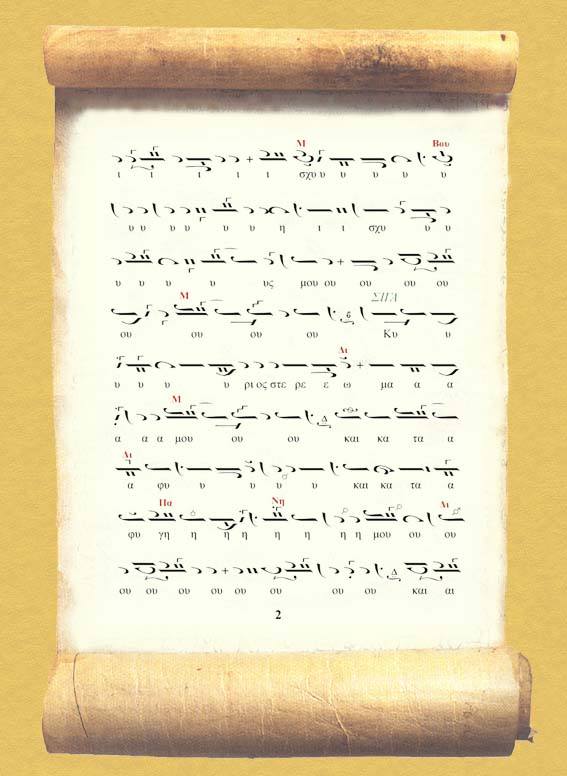 Μ Βου
ι ι ι ι ι ι σχυ υ υ υ υ υ
υ υ υ υ υ υ υ η ι ι σχυ υ υ
υ υ υ υ υς μου ου ου ου ου
Μ ΣΠΑ
ου ου ου ου Κυ υ
Δι
υ υ υ υ ρι ος στε ρε ε ω μα α α
Μ
α α α μου ου ου και κα τα α
Δι
α φυ υ υ υ υ υ και κα τα α
Πα Νη Δι
φυ γη η η η η η η η μου ου ου
ου ου ου ου ου ου ου ου και αι
2